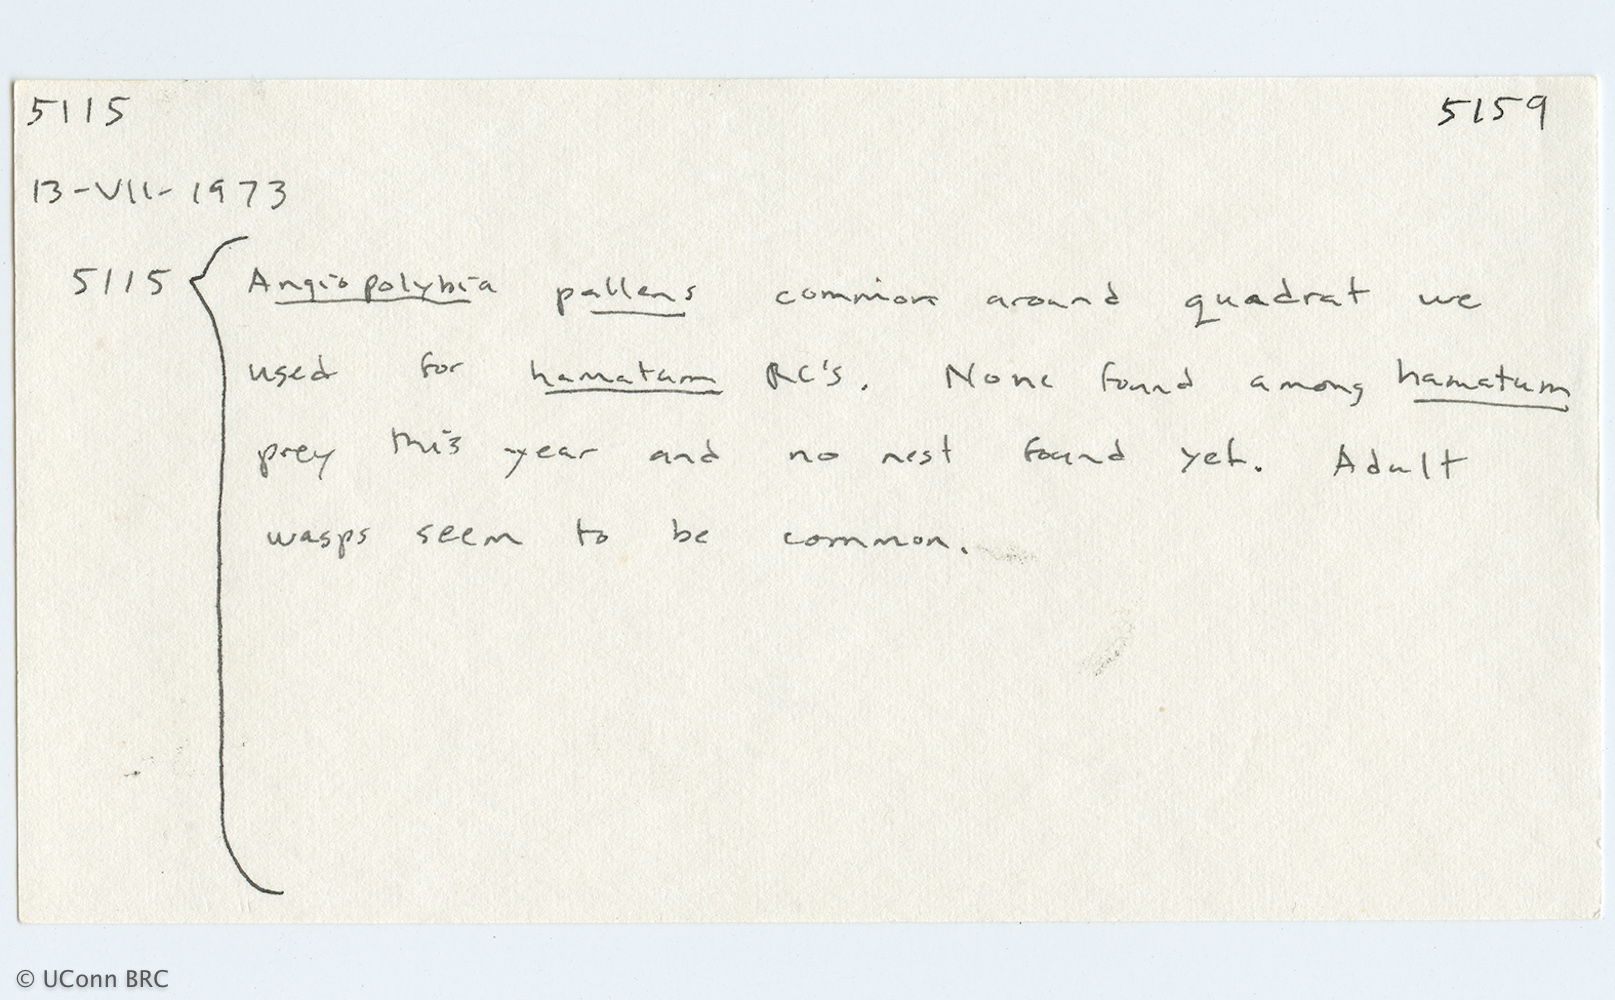 5115 5159
13-VII-1973
5115 { Angiopolybia pallens common around quadrat we
used for hamatum RC's. None found among hamatum
prey this year and no nest found yet. Adult
wasps seem to be common.
© UConn BRC